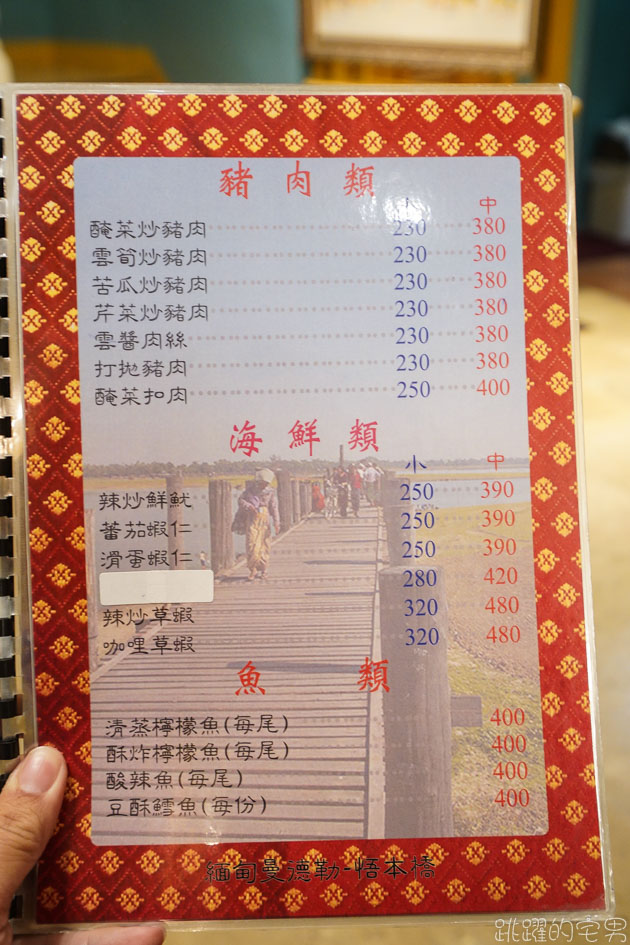 豬肉類
小 中
醃菜炒豬肉 230 380
雲筍炒豬肉 230 380
苦瓜炒豬肉 230 380
芹菜炒豬肉 230 380
雲醬肉絲 230 380
打拋豬肉 230 380
醃菜扣肉 250 400
海鮮類
小 中
辣炒鮮魷 250 390
蕃茄蝦仁 250 390
滑蛋蝦仁 250 390
280 420
辣炒草蝦 320 480
咖哩草蝦 320 480
魚類
清蒸檸檬魚(每尾) 400
酥炸檸檬魚(每尾) 400
酸辣魚(每尾) 400
豆酥鱈魚(每份) 400
緬甸曼德勒-悟本橋
跳躍的宅男